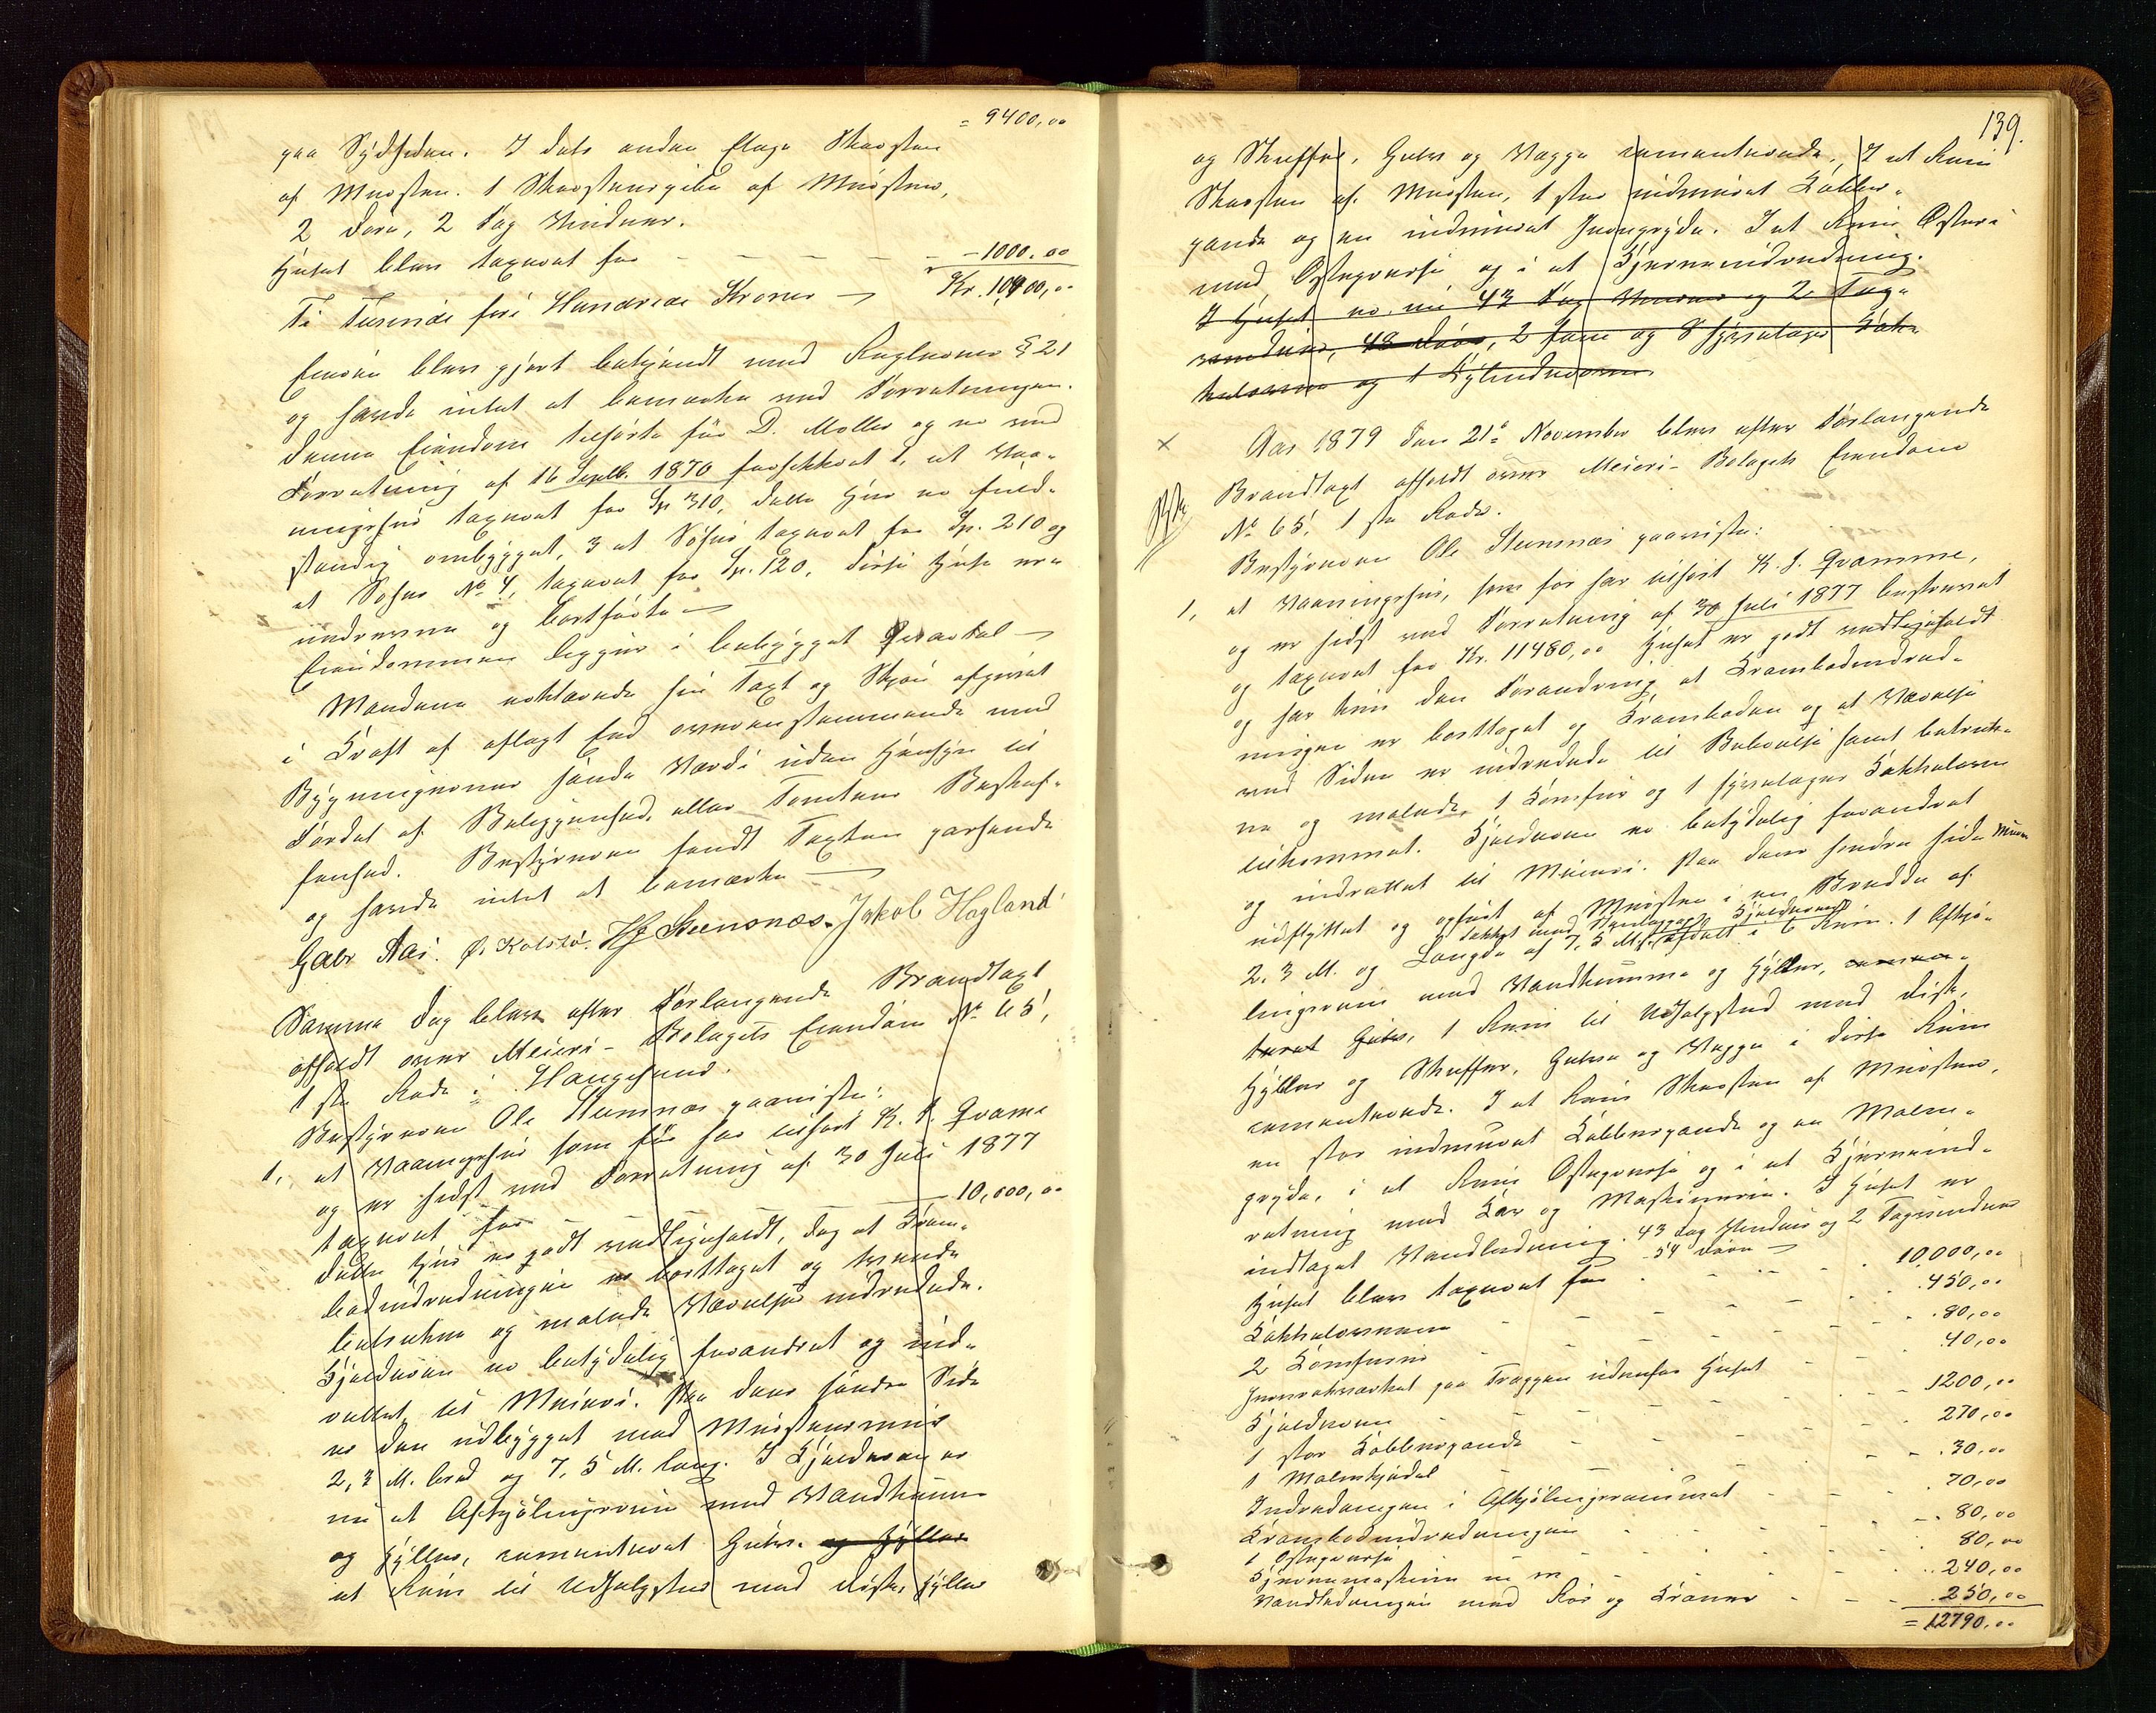 = 9400,00
paa Sydsiden. I dets anden Etage Skorsten
af Mursten. 1 Skorstenspibe af Mursten,
2 Døre, 2 Fag Vinduer.
Huset blev taxeret for - - - - - 1000.00
Ti Tusinde fire Hundrede Kroner — Kr. 10400,00
Eieren blev gjort bekjendt med Reglernes § 21
og havde intet at bemærke ved Forretningen.
Denne Eiendom tilhørte før D. Møller og er ved
Forretning af 16 Septb. 1870 forsikkret 1, et Vaa-
ningshus taxeret for Sp 310, dette Hus er fuld-
stændig ombygget, 3 et Søhus taxeret for Sp. 210 og
et Søhus No 4, taxeret for Sp. 120, disse Huse ere
nedrevne og bortførte —
Eiendommen ligger i bebygget Qvartal —
Mændene erklærede sin Taxt og Skjøn afgivet
i Kraft af aflagt Eed overensstemmende med
Bygningernes sande Værdi uden Hensyn til
Fordel af Beliggenhed, eller Tomtens Beskaf-
fenhed. Bestyreren fandt Taxten passende
og havde intet at bemærke —
Gabr Aas. Ø. Kolstø. H J Steensnæs. Jakob Hagland
Samme Dag blev efter Forlangende Brandtaxt
afholdt over Meieri-Bolagets Eiendom No 65,
1ste Rode i Haugesund.
Bestyreren Ole Steensnæs paaviste:
1, et Vaaningshus som før har tilhørt K. S. Qvame
og er sidst ved Forretning af 30 Juli 1877
taxeret for — 10,000,00
Dette Hus er godt vedligeholdt, dog at Kram-
bodindredningen er borttaget og tvende
betrukne og malede Værelser indredede.
Kjælderen er betydelig forandret og ind-
rettet til Meieri. Paa dens søndre Side
er den udbygget med Murstensmur
2,3 M. bred og 7,5 M. lang. I Kjælderen er
nu et Afkjølingsrum med Vandkumme
og Hylder, cementeret Gulv. og Hylder
et Rum til Udsalgssted med Disk, Hylder
139.
og Skuffer, Gulv og Vægge cementerede. I et Rum
Skorsten af Mursten, 1 stor indmuret Kobber-
pande og en indmuret Jerngryde. I et Rum Osteri
med Ostepresse og i et Kjerneindredning.
I Huset er nu 43 Fag Vinduer og 2 Tag-
vinduer, 48 Døre, 2 Komf. og 8 fireetages Kak-
kelovne og 1 Cylinderovn.
× Aar 1879 den 21de November blev efter Forlangende
Brandtaxt afholdt over Meieri-Bolagets Eiendom
No 65, 1ste Rode.
Bestyreren Ole Steensnæs paaviste:
1, et Vaaningshus, som før har tilhørt K. S. Qvamme,
og er sidst ved Forretning af 30 Juli 1877 beskrevet
og taxeret for Kr. 11480,00 Huset er godt vedligeholdt
og har kun den Forandring, at Krambodindred-
ningen er borttaget og Kramboden og et Værelse
ved Siden er indredede til Beboelse samt betruk-
ne og malede, 1 Komfur og 1 fireetages Kakkelovn
tilkommet. Kjælderen er betydelig forandret
og indrettet til Meieri. Paa dens søndre Side Muren
udflyttet og opført af Mursten i en Bredde af
2,3 M. og Længde af 7,5 M. afdelt i 6 Rum. 1 Afkjø-
lingsrum med Vandkumme og Hylder, cemen-
teret Gulv, 1 Rum til Udsalgssted med Disk,
Hylder og Skuffer, Gulve og Vægge i disse Rum
cementerede. I et Rum Skorsten af Mursten,
en stor indmuret Kobberpande og en Malm-
gryde, i et Rum Ostepresse og i et Kjerneind-
retning med Kar og Maskineri. I Huset er
indtaget Vandledning. 43 Fag Vinduer og 2 Tagvinduer
54 Døre —
Huset blev taxeret for 10,000,00
Kakkelovnene 450,00
2 Komfurer 80,00
Jernrækværket paa Trappen udenfor Huset 40,00
Kjælderen 1200,00
1 stor Kobberpande 270,00
1 Malmkjedel 30,00
Indredningen i Afkjølingsrummet 70,00
Krambodindredningen 80,00
1 Ostepresse 80,00
Kjernemaskin 240,00
Vandledningen med Rør og Kraner 250,00
= 12790,00